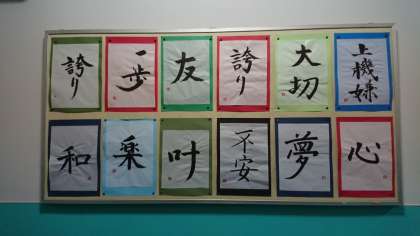 誇り
一歩
友
誇り
大切
上機嫌
和
楽
叶
不安
夢
心